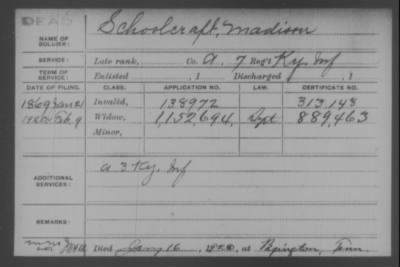 DEAD
NAME OF SOLDIER: Schoolcraft, Madison
SERVICE: Late rank, Co. A, 7 Reg't Ky. Inf
TERM OF SERVICE: Enlisted , 1 Discharged , 1
DATE OF FILING. CLASS. APPLICATION NO. LAW. CERTIFICATE NO.
1869 Jan 21 Invalid, 138972 313,148
Feb 9 Widow, 1,152,694, 889,463
Minor,
ADDITIONAL SERVICES: A 3 Ky. Inf
REMARKS:
Died Jany 16, at Tenn